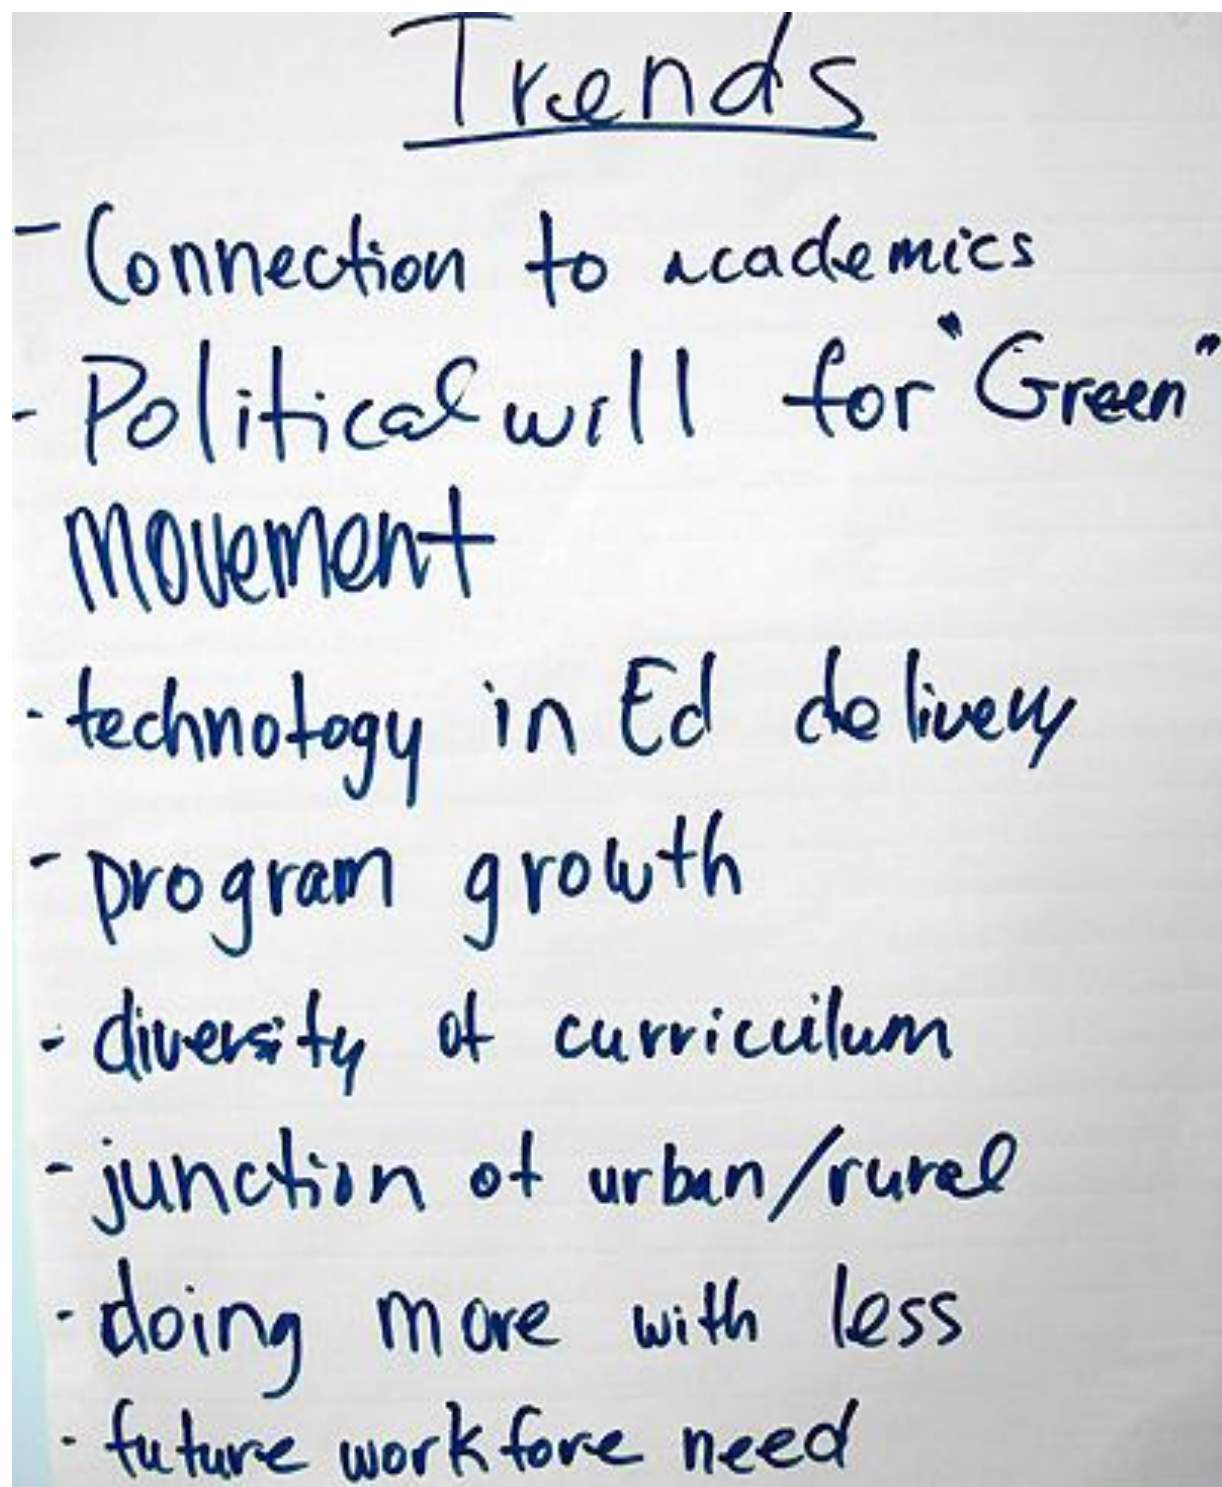 Trends
- Connection to academics
- Political will for "Green"
movement
- technology in Ed delivery
- program growth
- diversity of curriculum
- junction of urban/rural
- doing more with less
- future workfore need